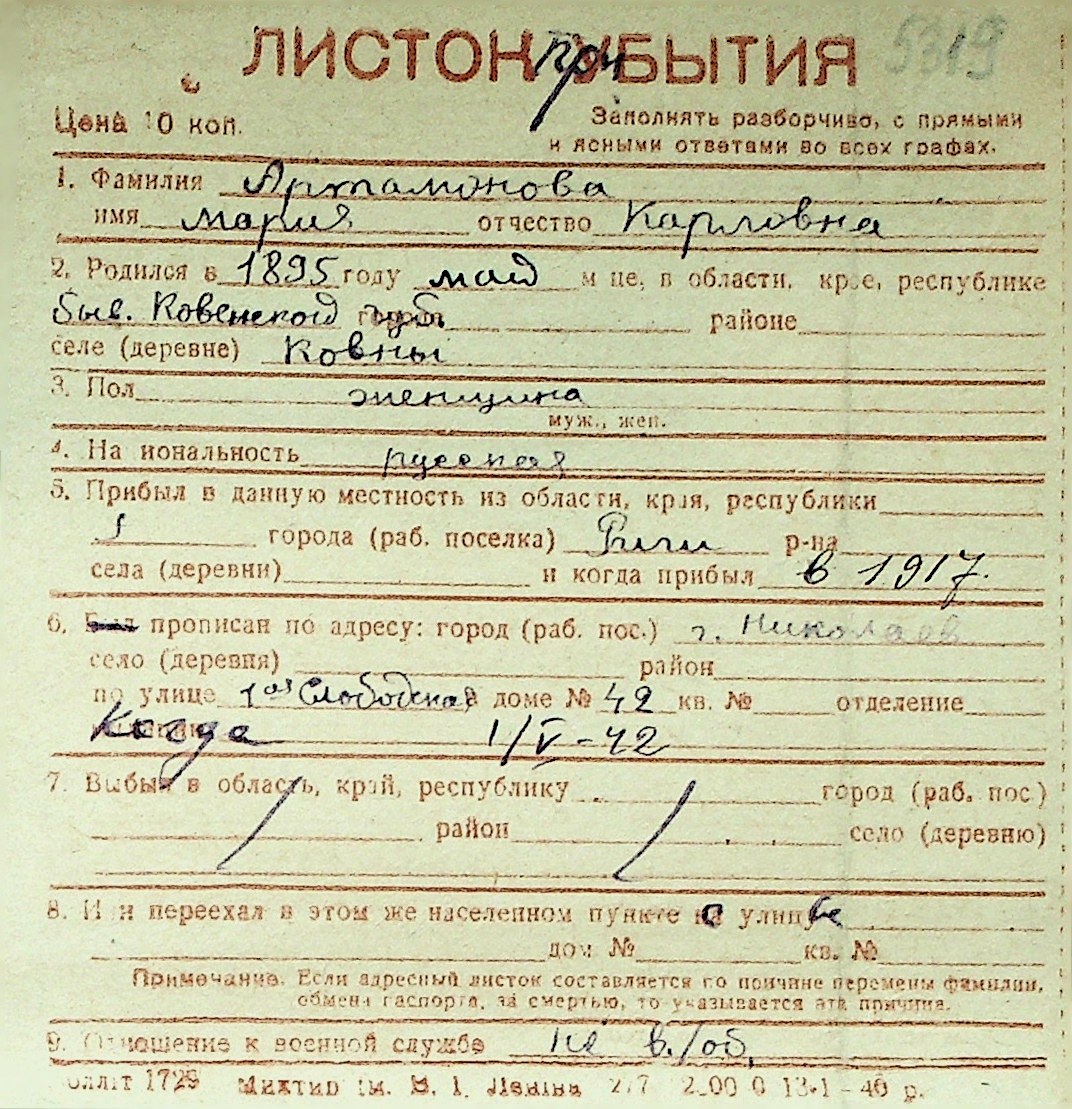 ЛИСТОК при УБЫТИЯ 5319
Цена 10 коп.
Заполнять разборчиво, с прямыми
и ясными ответами во всех графах.
1. Фамилия Артамонова
имя Мария отчество Карловна
2. Родился в 1895 году май м це, в области, крае, республике
быв. Ковенской губ. районе
селе (деревне) Ковны
3. Пол женщина
муж., жен.
4. На иональность русская
5. Прибыл в данную местность из области, края, республики
города (раб. поселка) Риги р-на
села (деревни) и когда прибыл в 1917.
6. прописан по адресу: город (раб. пос.) г. Николаев
село (деревня) район
по улице 1ая Слободская в доме № 42 кв. № отделение
когда 1/V-42
7. Выбыл в область, край, республику город (раб. пос.)
район село (деревню)
8. И и переехал в этом же населенном пункте с улице
дом № кв. №
Примечание. Если адресный листок составляется по причине перемены фамилии,
обмена паспорта, за смертью, то указывается эта причина.
9. Отношение к военной службе не в./об.
облліт 1729 Миктип ім. В. І. Леніна 2/7 2.00 0 13.1-40 р.